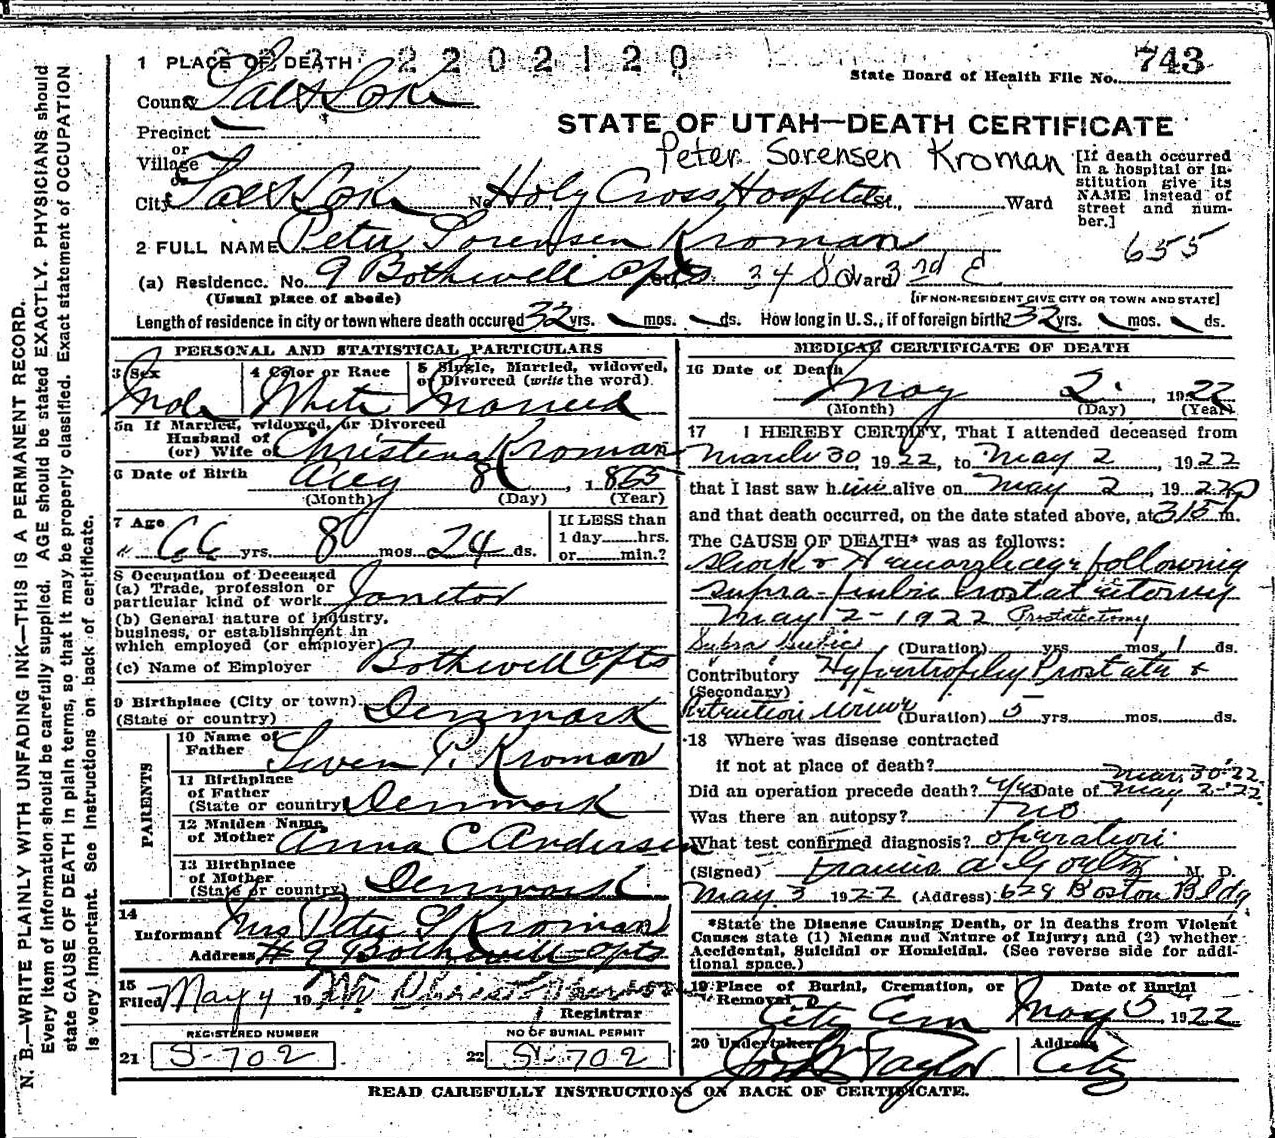 1 PLACE OF DEATH 2202120
State Board of Health File No. 743
County Salt Lake
Precinct
STATE OF UTAH—DEATH CERTIFICATE
or
Village
Peter Sorensen Kroman
[If death occurred in a hospital or institution give its NAME instead of street and number.]
or
City Salt Lake No. Holy Cross Hospital St., Ward
2 FULL NAME Peter Sorensen Kroman
655
(a) Residence. No. 9 Bothwell Apts St. 34 So Ward 3rd E
(Usual place of abode) [IF NON-RESIDENT GIVE CITY OR TOWN AND STATE]
Length of residence in city or town where death occured 32 yrs. mos. ds. How long in U.S., if of foreign birth? 32 yrs. mos. ds.
PERSONAL AND STATISTICAL PARTICULARS
3 Sex Male
4 Color or Race White
5 Single, Married, widowed, or Divorced (write the word) Married
5a If Married, widowed, or Divorced
Husband of
(or) Wife of Christena Kroman
6 Date of Birth Aug 8, 1865
(Month) (Day) (Year)
7 Age 66 yrs. 8 mos. 24 ds.
If LESS than
1 day hrs.
or min.?
8 Occupation of Deceased
(a) Trade, profession or
particular kind of work Janitor
(b) General nature of industry,
business, or establishment in
which employed (or employer)
(c) Name of Employer Bothwell Apts
9 Birthplace (City or town)
(State or country) Denmark
PARENTS
10 Name of
Father Swen P. Kroman
11 Birthplace
of Father
(State or country) Denmark
12 Maiden Name
of Mother Anna C Andersen
13 Birthplace
of Mother
(State or country) Denmark
14
Informant Mrs Peter S Kroman
Address # 9 Bothwell Apts
15
Filed May 4 19
Registrar
REGISTERED NUMBER
21 S-702
NO OF BURIAL PERMIT
22 S-702
MEDICAL CERTIFICATE OF DEATH
16 Date of Death
May 2, 1922
(Month) (Day) (Year)
17 I HEREBY CERTIFY, That I attended deceased from
March 30, 1922, to May 2, 1922
that I last saw him alive on May 2, 1922
and that death occurred, on the date stated above, at 315 P m.
The CAUSE OF DEATH* was as follows:
Shock & Hemorrhage following
supra-pubic Prostatectomy
May 2-1922 Prostatectomy
Supra pubic (Duration) yrs. mos. 1 ds.
Contributory Hypertrophy Prostate &
(Secondary)
Retention Urine (Duration) 5 yrs. mos. ds.
18 Where was disease contracted
if not at place of death?
Mar. 30-22
Did an operation precede death? Yes Date of May 2-'22
Was there an autopsy? No
What test confirmed diagnosis? operation
(Signed) Francis A Goeltz M. D.
May 3 1922 (Address) 629 Boston Bldg
*State the Disease Causing Death, or in deaths from Violent
Causes state (1) Means and Nature of Injury; and (2) whether
Accidental, Suicidal or Homicidal. (See reverse side for addi-
tional space.)
19 Place of Burial, Cremation, or
Removal City Cem
Date of Burial
May 5, 1922
20 Undertaker Jos Wm Taylor
Address City
READ CAREFULLY INSTRUCTIONS ON BACK OF CERTIFICATE.
N. B.—WRITE PLAINLY WITH UNFADING INK—THIS IS A PERMANENT RECORD.
Every item of information should be carefully supplied. AGE should be stated EXACTLY. PHYSICIANS should
state CAUSE OF DEATH in plain terms, so that it may be properly classified. Exact statement of OCCUPATION
is very important. See Instructions on back of certificate.